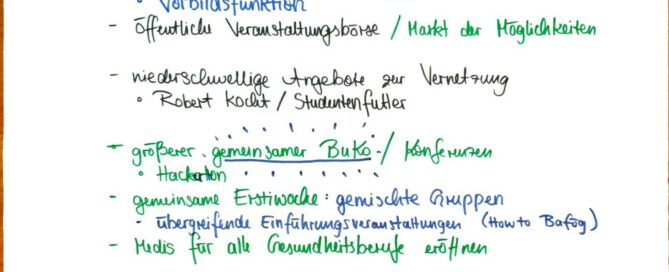 • Vorbildsfunktion
- öffentliche Veranstaltungsbörse / Markt der Möglichkeiten
- niederschwellige Angebote zur Vernetzung
• Robert kocht / Studentenfutter
- größerer gemeinsamer BuKo / Konferenzen
• Hackerton
- gemeinsame Erstiwoche : gemischte Gruppen
- übergreifende Einführungsveranstaltungen (How to Bafög)
- Medis für alle Gesundheitsberufe eröffnen